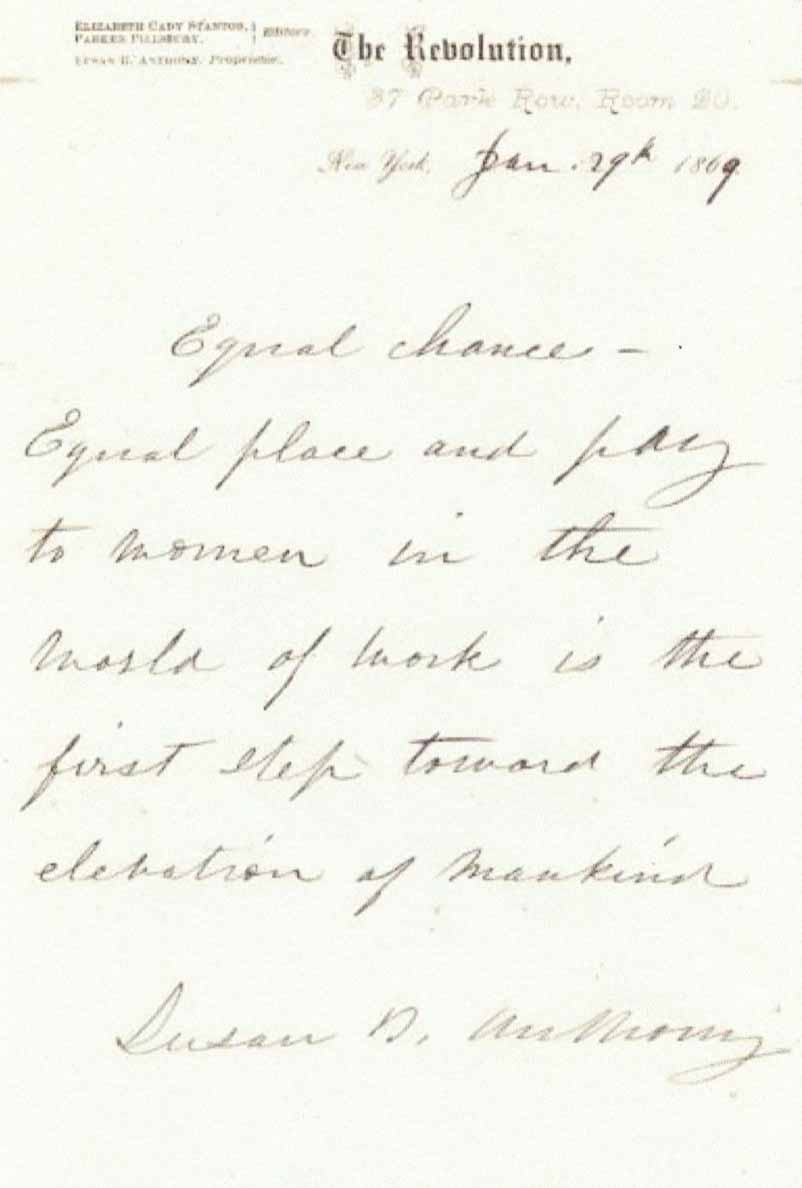 ELIZABETH CADY STANTON, } Editors.
PARKER PILLSBURY,
SUSAN B. ANTHONY, Proprietor.
The Revolution,
37 Park Row, Room 20.
New York, Jan. 29th 1869
Equal chance –
Equal place and pay
to women in the
world of work is the
first step toward the
elevation of mankind
Susan B. Anthony